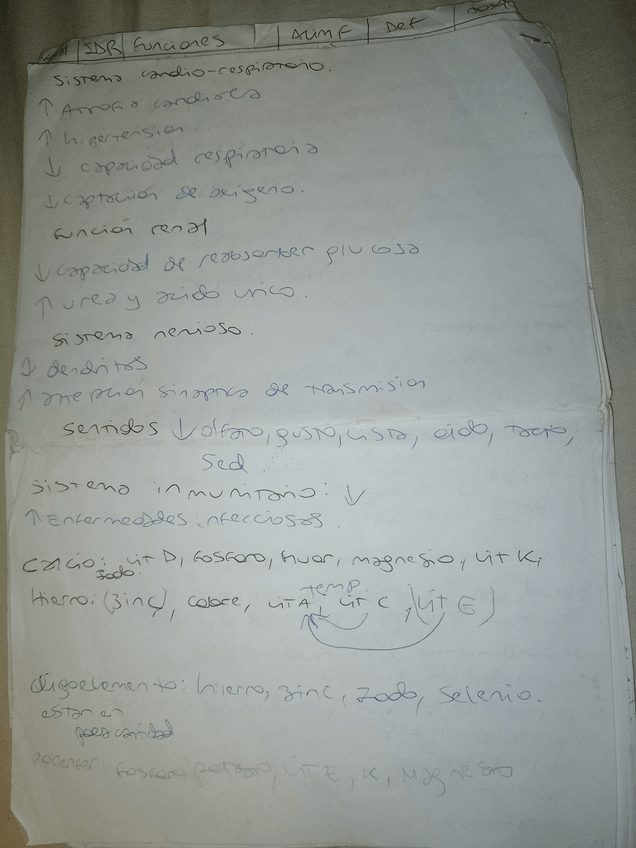 IDR | Funciones | Alim F | Def
Sistema cardio-respiratorio.
↑ Atrofia cardiaca
↑ hipertension
↓ capacidad respiratoria
↓ captación de oxígeno.
Función renal
↓ capacidad de reabsorber glucosa
↑ urea y acido urico.
Sistema nervioso.
↓ dendritas
↑ alteración sinaptica de transmision
Sentidos ↓ olfato, gusto, vista, oido, tacto,
Sed
Sistema inmunitario: ↓
↑ Enfermedades infecciosas.
Calcio: Vit D, fosforo, fluor, magnesio, Vit K,
Iodo:
temp
Hierro: (zinc), cobre, Vit A, Vit C, (Vit E)
oligoelemento: hierro, zinc, Iodo, Selenio.
estan en
poca cantidad
fosforo, potasio, Vit E, K, Magnesio